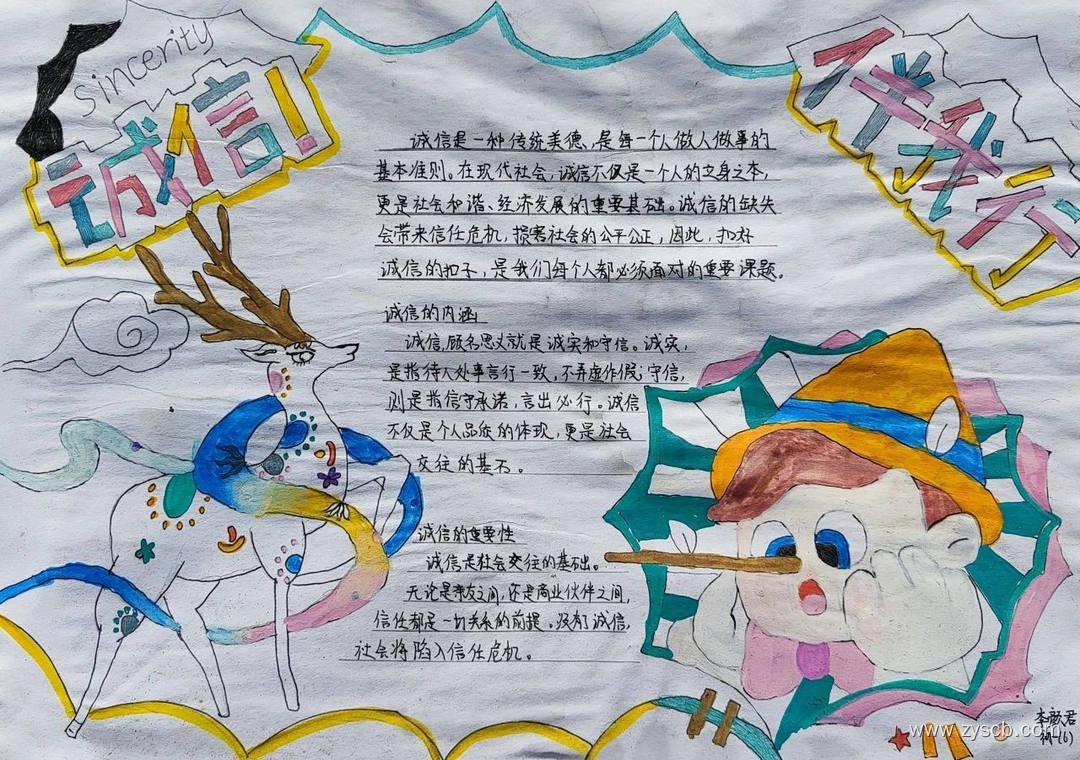 Sincerity
誠信!
伴我行
诚信是一种传统美德,是每一个人做人做事的
基本准则。在现代社会,诚信不仅是一个人的立身之本,
更是社会和谐、经济发展的重要基础。诚信的缺失
会带来信任危机,损害社会的公平公正,因此,扣好
诚信的扣子,是我们每个人都必须面对的重要课题。
诚信的内涵
诚信,顾名思义就是诚实和守信。诚实,
是指待人处事言行一致,不弄虚作假;守信,
则是指信守承诺,言出必行。诚信
不仅是个人品质的体现,更是社会
交往的基石。
诚信的重要性
诚信是社会交往的基础。
无论是亲友之间,还是商业伙伴之间,
信任都是一切关系的前提。没有了诚信,
社会将陷入信任危机。
李颜君
初一(6)
www.zyscb.com